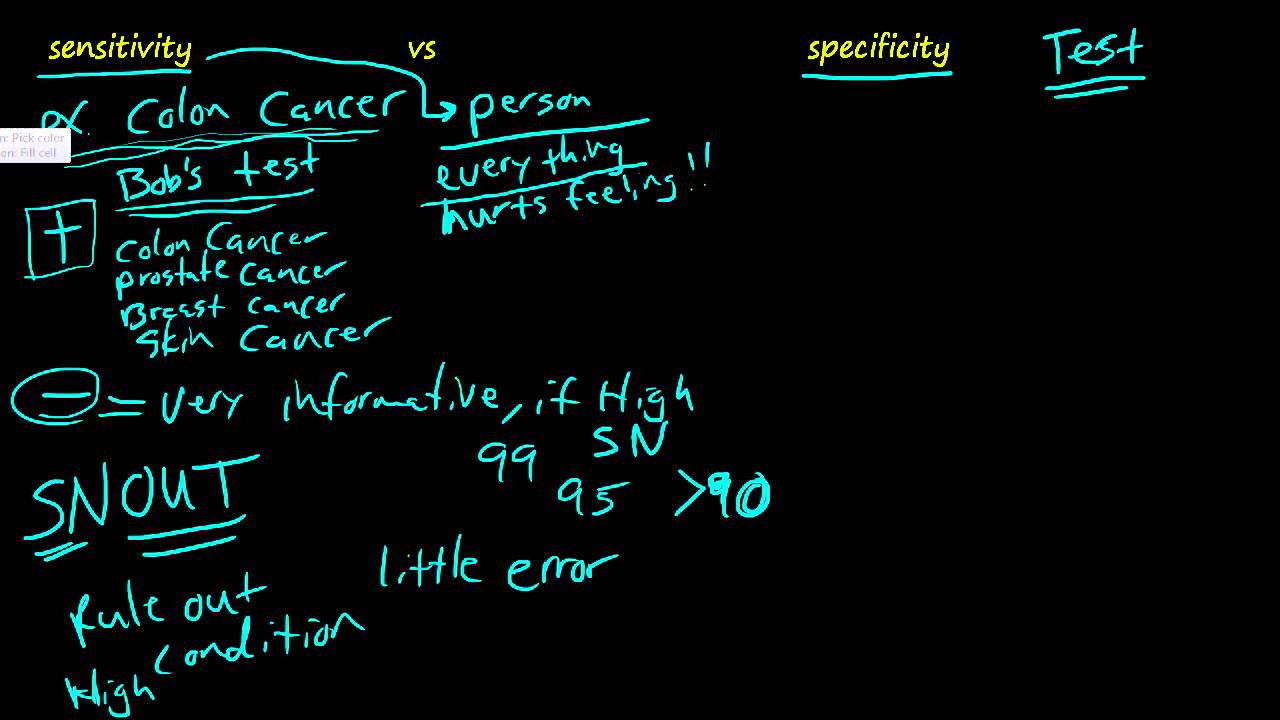 sensitivity vs specificity Test
ex. Colon Cancer person
n: Pick color
on: Fill cell
Bob's test everything
hurts feeling!!
+
Colon Cancer
prostate cancer
Breast cancer
Skin Cancer
− = very informative, if High
SN
99
95 >90
SNOUT
little error
Rule out
condition
High